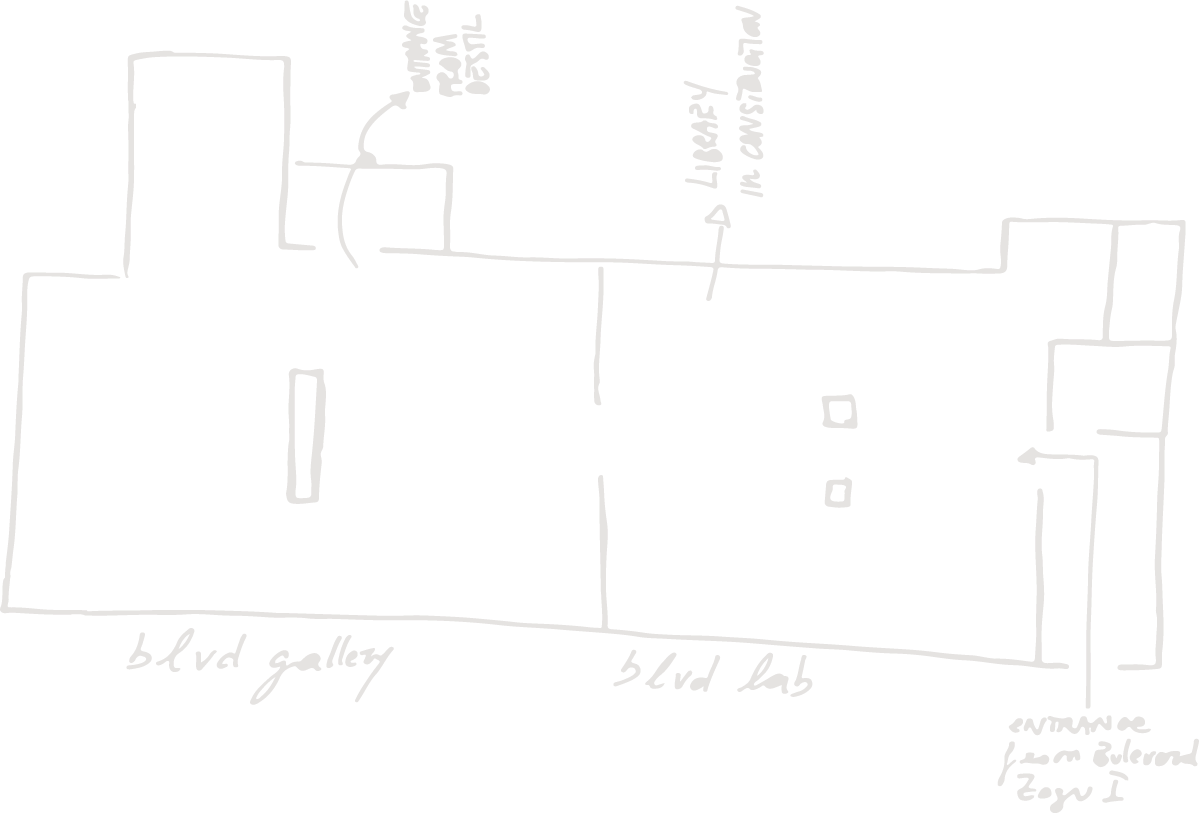 ENTRANCE
FROM
DESTIL
LIBRARY
IN CONSTRUCTION
blvd gallery
blvd lab
ENTRANCE
from Bulevard
Zogu I